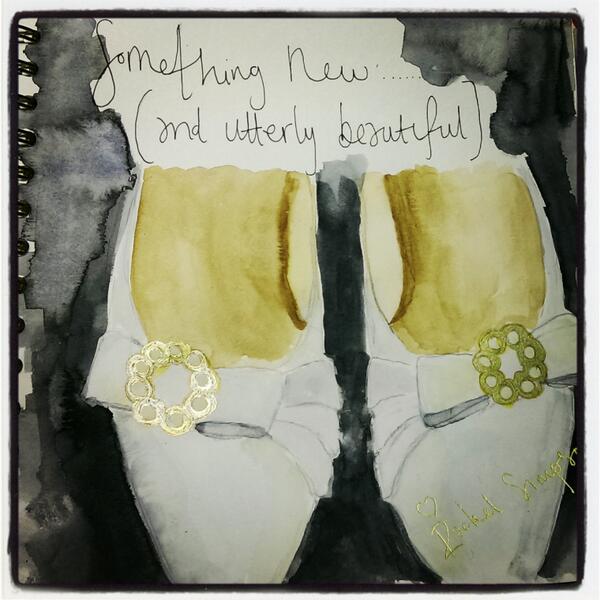 Something new.......
(and utterly beautiful)
♡
Rachel Simpson